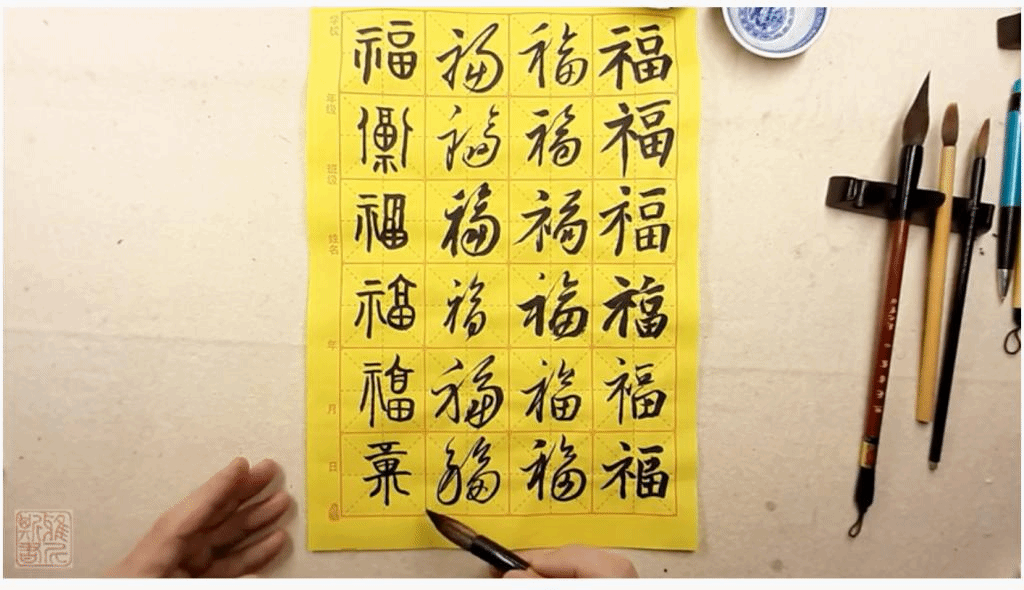 福福福福福福
福福福福福福
福福福福福福
福福福福福
学校
年级
班级
姓名
年
月
日